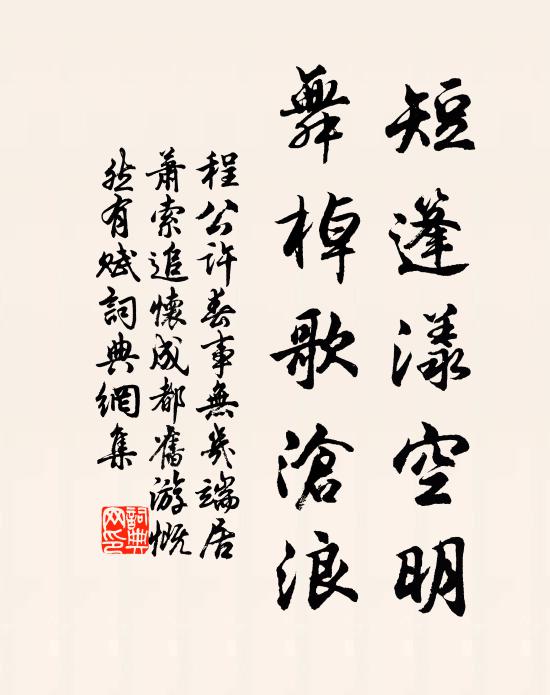 短蓬漾空明
舞棹歌滄浪
程公許春事無幾端居
蕭索追懷成都舊游慨
然有賦詞典網集
詞典
网印